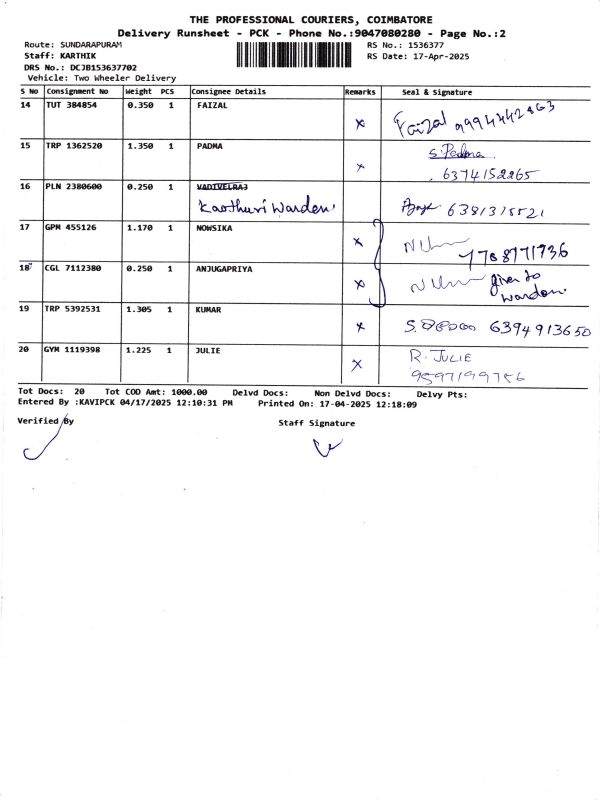 THE PROFESSIONAL COURIERS, COIMBATORE
Delivery Runsheet - PCK - Phone No.:9047080280 - Page No.:2
Route: SUNDARAPURAM RS No.: 1536377
Staff: KARTHIK RS Date: 17-Apr-2025
DRS No.: DCJB153637702
Vehicle: Two Wheeler Delivery
S No Consignment No Weight PCS Consignee Details Remarks Seal & Signature
14 TUT 384854 0.350 1 FAIZAL x Faizal
15 TRP 1362520 1.350 1 PADMA x S. Padma
6374152265
16 PLN 2380600 0.250 1 VADIVELRAJ
Warden. 6381375521
17 GPM 455126 1.170 1 NOWSIKA x 7708771736
18 CGL 7112380 0.250 1 ANJUGAPRIYA x given to
warden.
19 TRP 5392531 1.305 1 KUMAR x 6394913650
20 GYM 1119398 1.225 1 JULIE x R. JULIE
9597199756
Tot Docs: 20 Tot COD Amt: 1000.00 Delvd Docs: Non Delvd Docs: Delvy Pts:
Entered By :KAVIPCK 04/17/2025 12:10:31 PM Printed On: 17-04-2025 12:18:09
Verified By Staff Signature